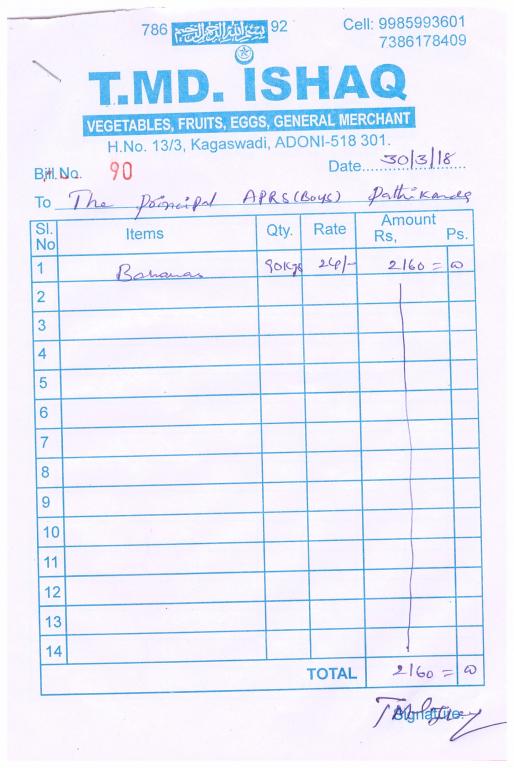 786 بسم الله الرحمن الرحيم 92
Cell: 9985993601
7386178409
T.MD. ISHAQ
VEGETABLES, FRUITS, EGGS, GENERAL MERCHANT
H.No. 13/3, Kagaswadi, ADONI-518 301.
Bill.No. 90
Date 30/3/18
To The Principal APRS (Boys) Pathikonda
Sl. No Items Qty. Rate Amount Rs, Ps.
1 Bananas 90Kgs 24/- 2160 = 00
2
3
4
5
6
7
8
9
10
11
12
13
14
TOTAL 2160 = 00
Signature